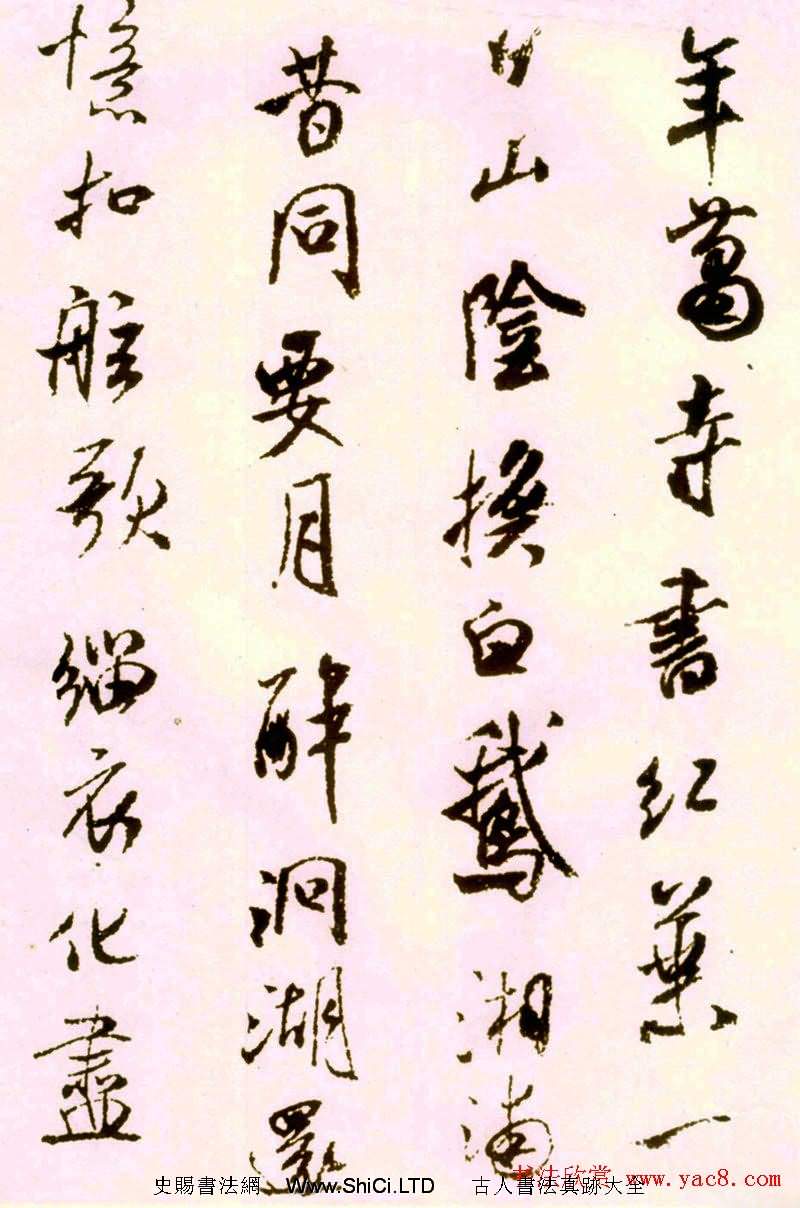 年蕭寺書紅葉一
日山陰換白鵝湘浦
昔同要月醉洞湖還
憶扣舷歌緇衣化盡
书法欣赏 www.yac8.com
史賜書法網 Www.ShiCi.LTD 古人書法真跡大全